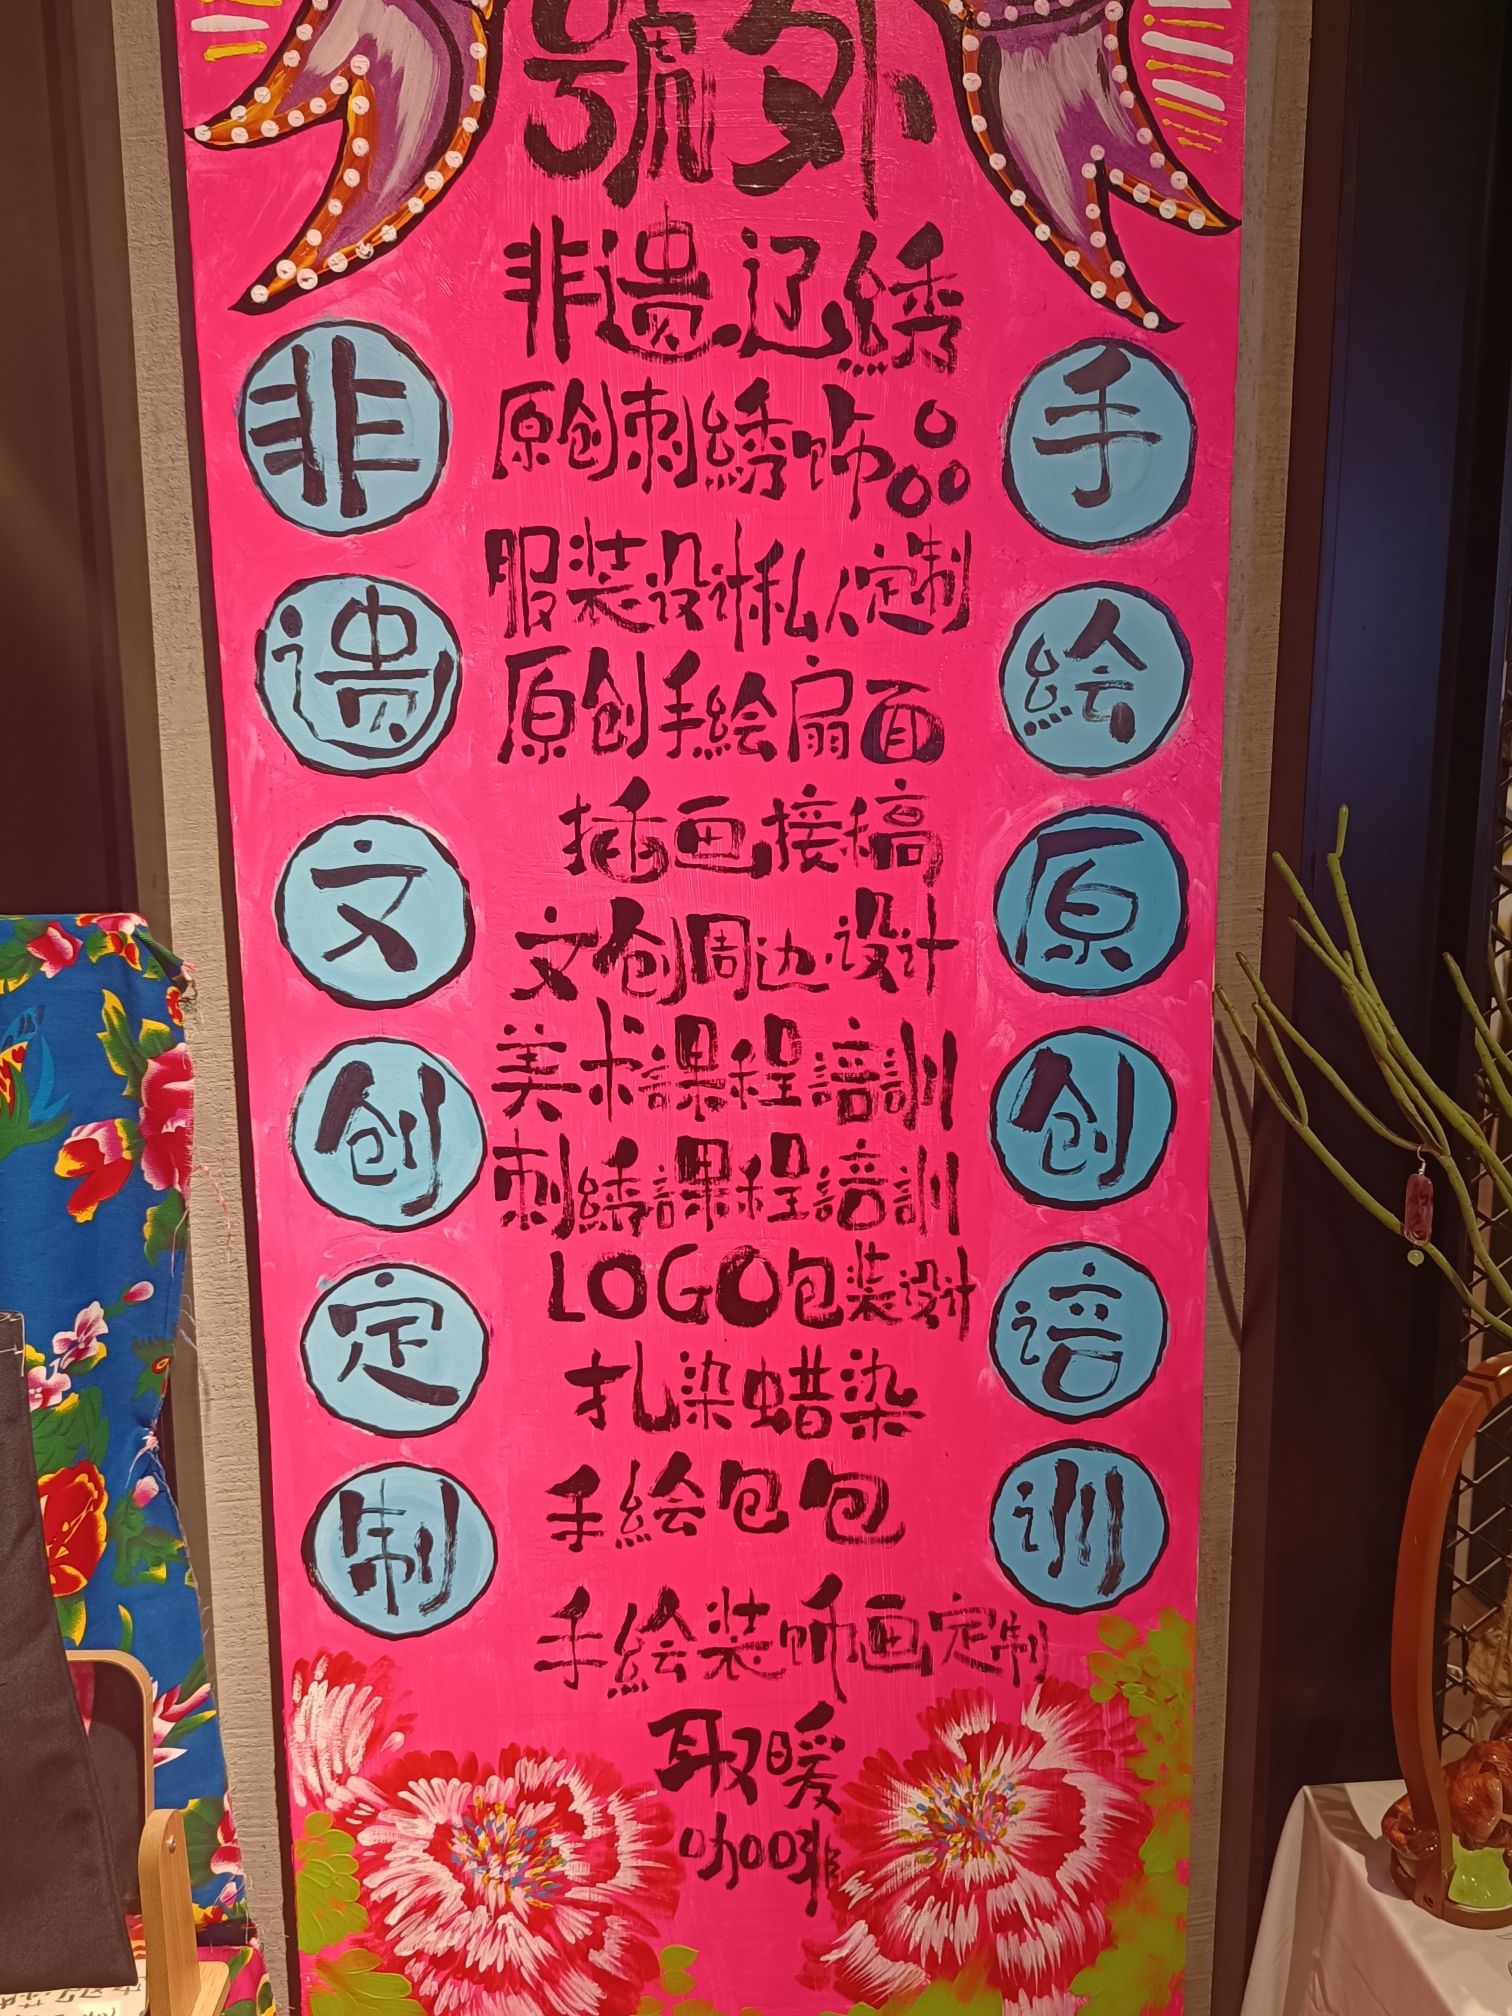 號外
非遗.辽绣
原创刺绣饰品
服装设计私人定制
原创手绘扇面
插画接稿
文创周边·设计
美术課程培訓
刺绣課程培訓
LOGO包装设计
扎染蜡染
手绘包包
手绘装饰画定制
取暖
咖啡
非遗文创定制
手绘原创培训